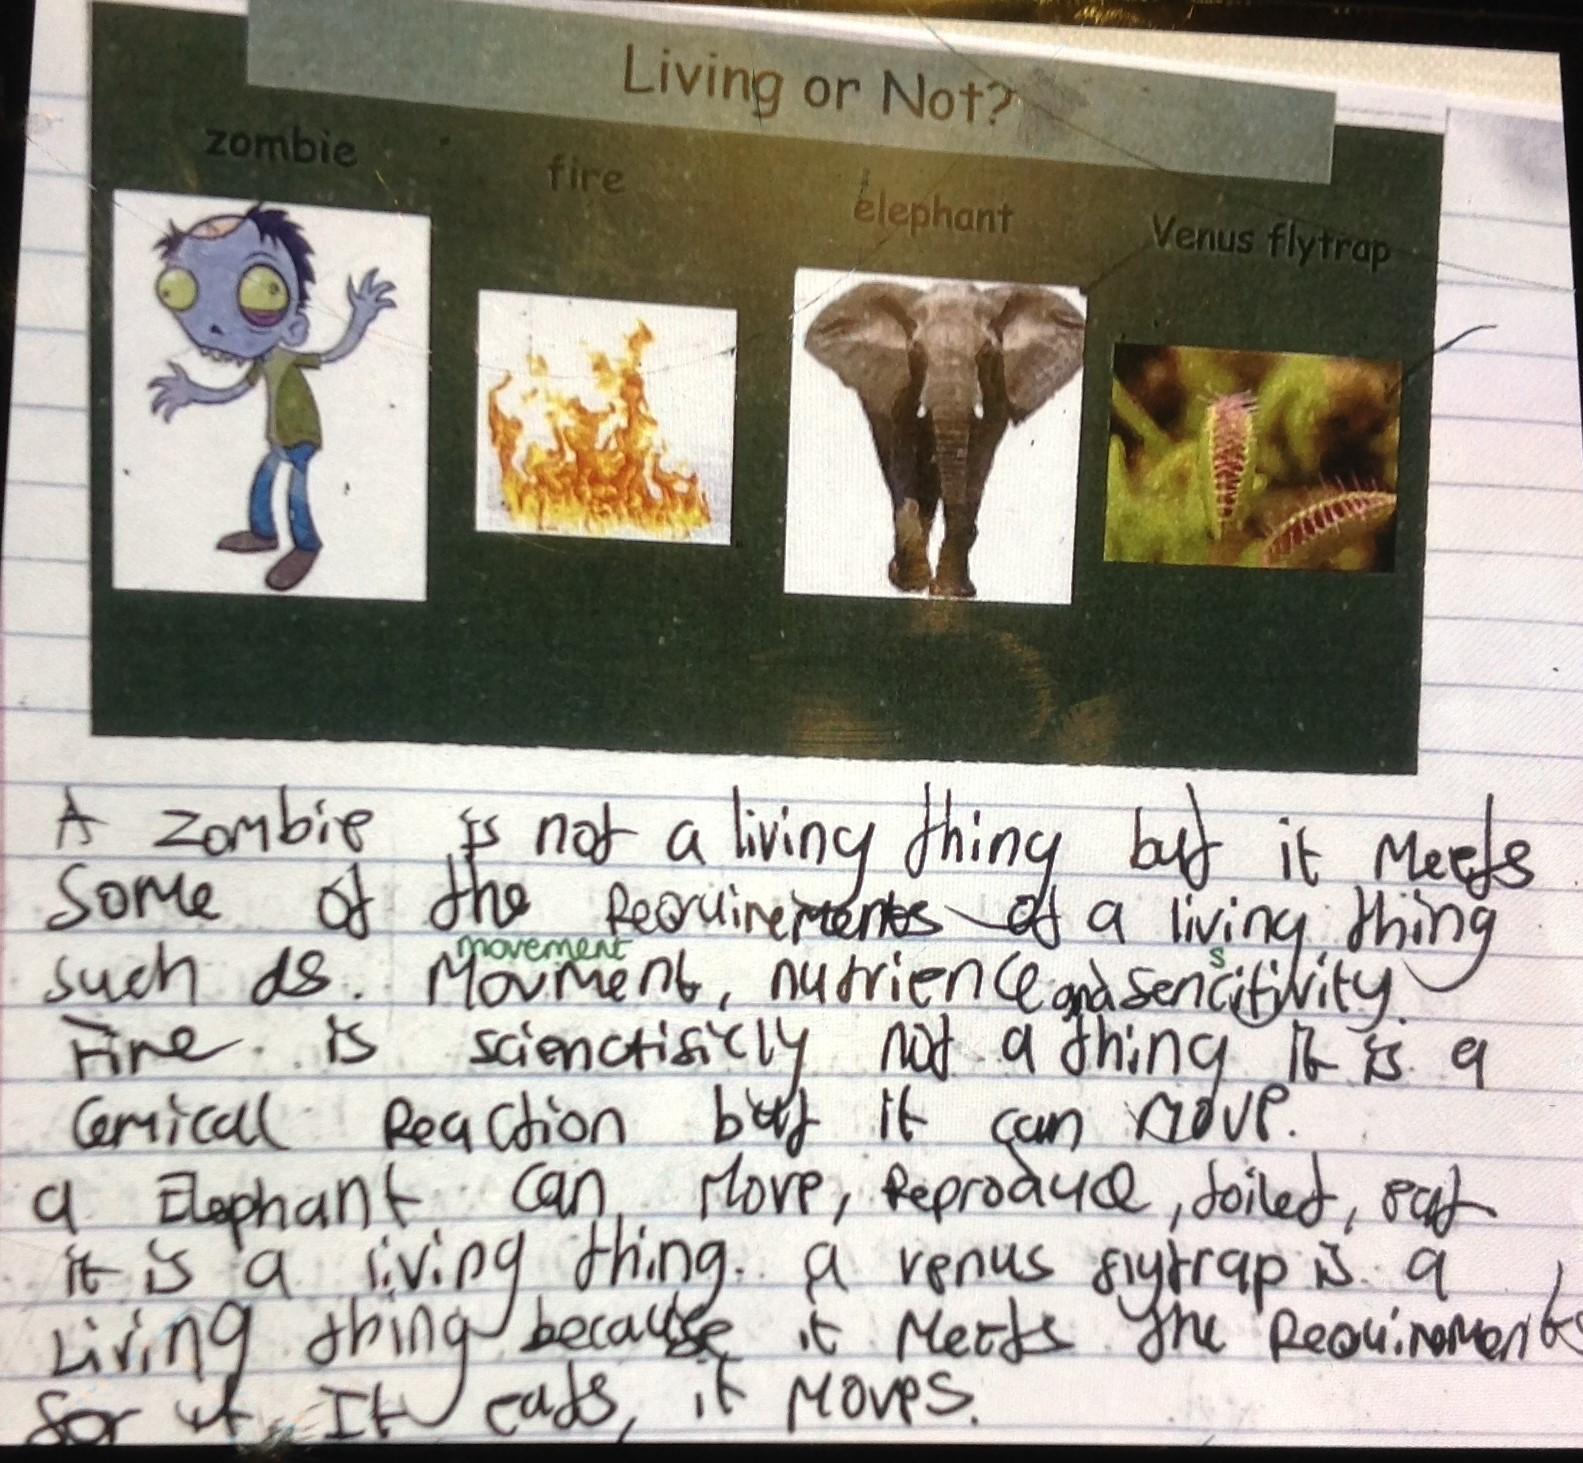 Living or Not?
zombie
fire
elephant
Venus flytrap
A zombie is not a living thing but it Meets
Some of the Requirements of a living thing
movement s
such as. Movment, nutrience and sencitivity.
Fire is scienctificly not a thing it is a
Cemical Reaction but it can Move.
a Elephant can Move, Reproduce, toilet, eat
it is a living thing. a venus flytrap is a
Living thing because it Meets the Requirements
for it It eats, it Moves.